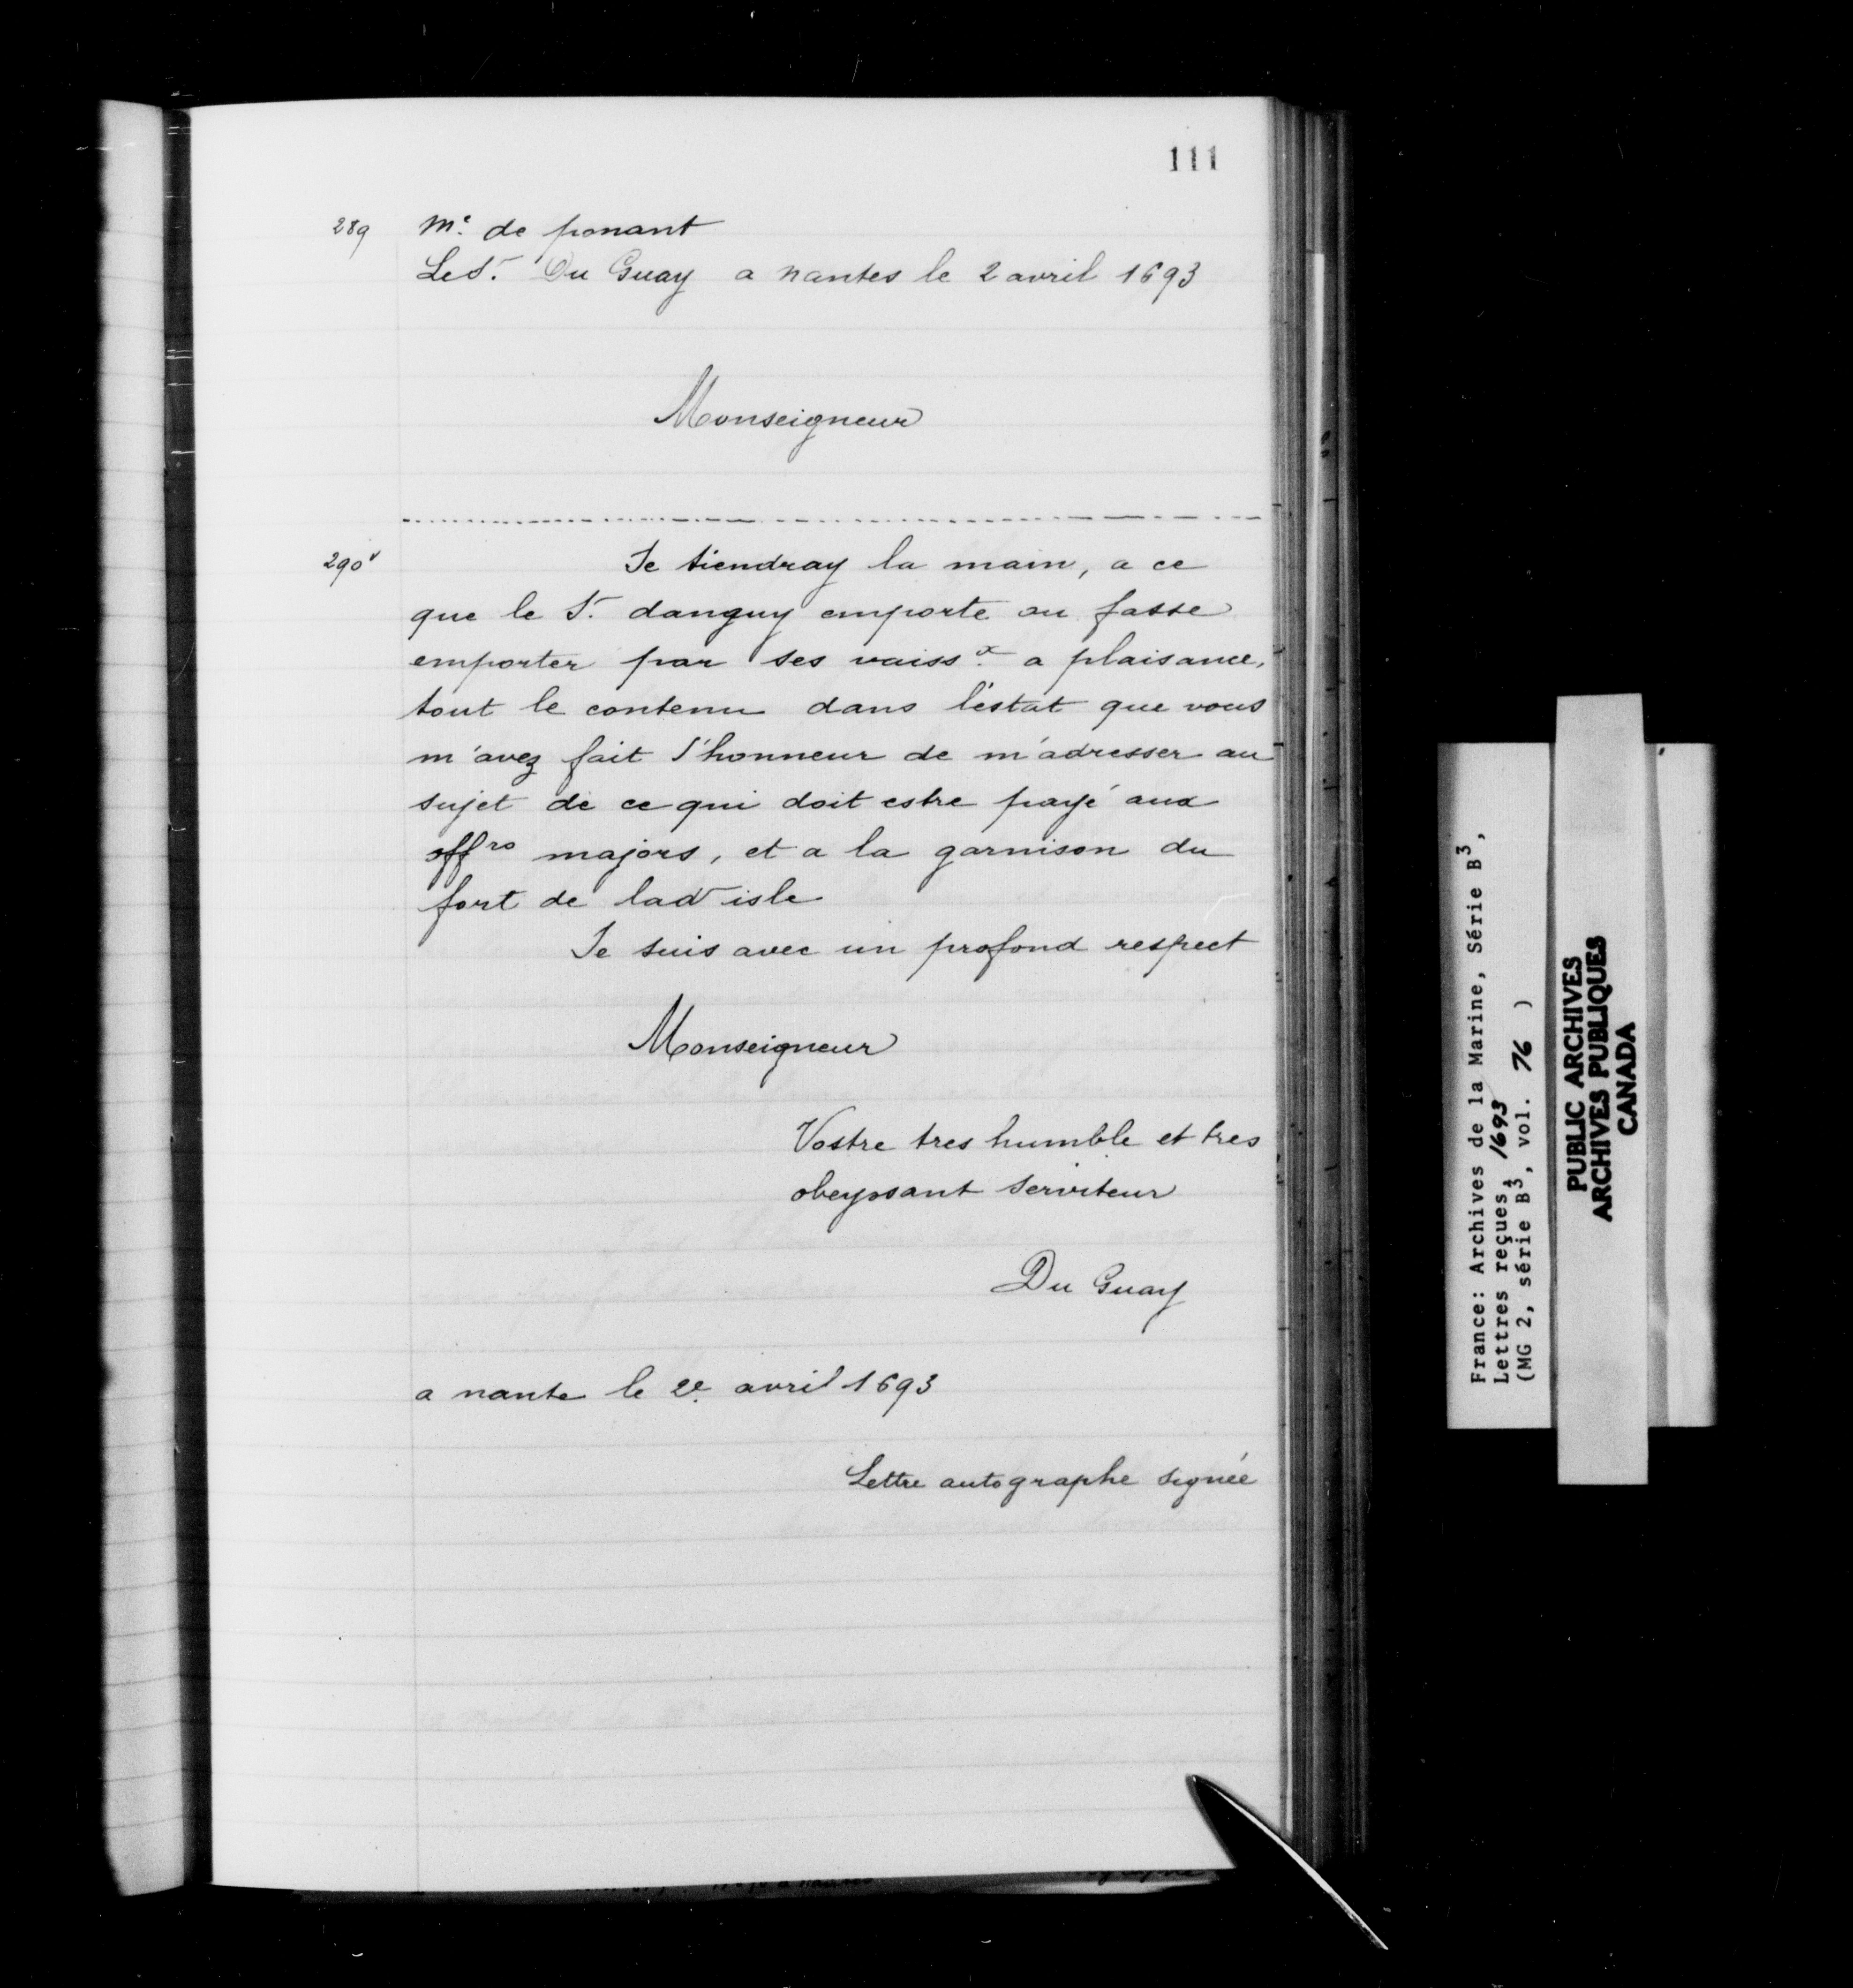 111
289 Mᵉ. de ponant
Le Sʳ. Du Guay a nantes le 2 avril 1693
Monseigneur
290ᵛ Je tiendray la main, a ce
que le Sʳ. danguy emporte ou fasse
emporter par ses vaissˣ. a plaisance,
tout le contenu dans l'estat que vous
m'avez fait l'honneur de m'adresser au
sujet de ce qui doit estre payé aux
offʳˢ majors, et a la garnison du
fort de ladᵗ isle
Je suis avec un profond respect
Monseigneur
Vostre tres humble et tres
obeyssant serviteur
Du Guay
a nante le 2ᵉ. avril 1693
Lettre autographe signée
France: Archives de la Marine, Série B³,
Lettres reçues, 1693
(MG 2, série B³, vol. 76 )
PUBLIC ARCHIVES
ARCHIVES PUBLIQUES
CANADA